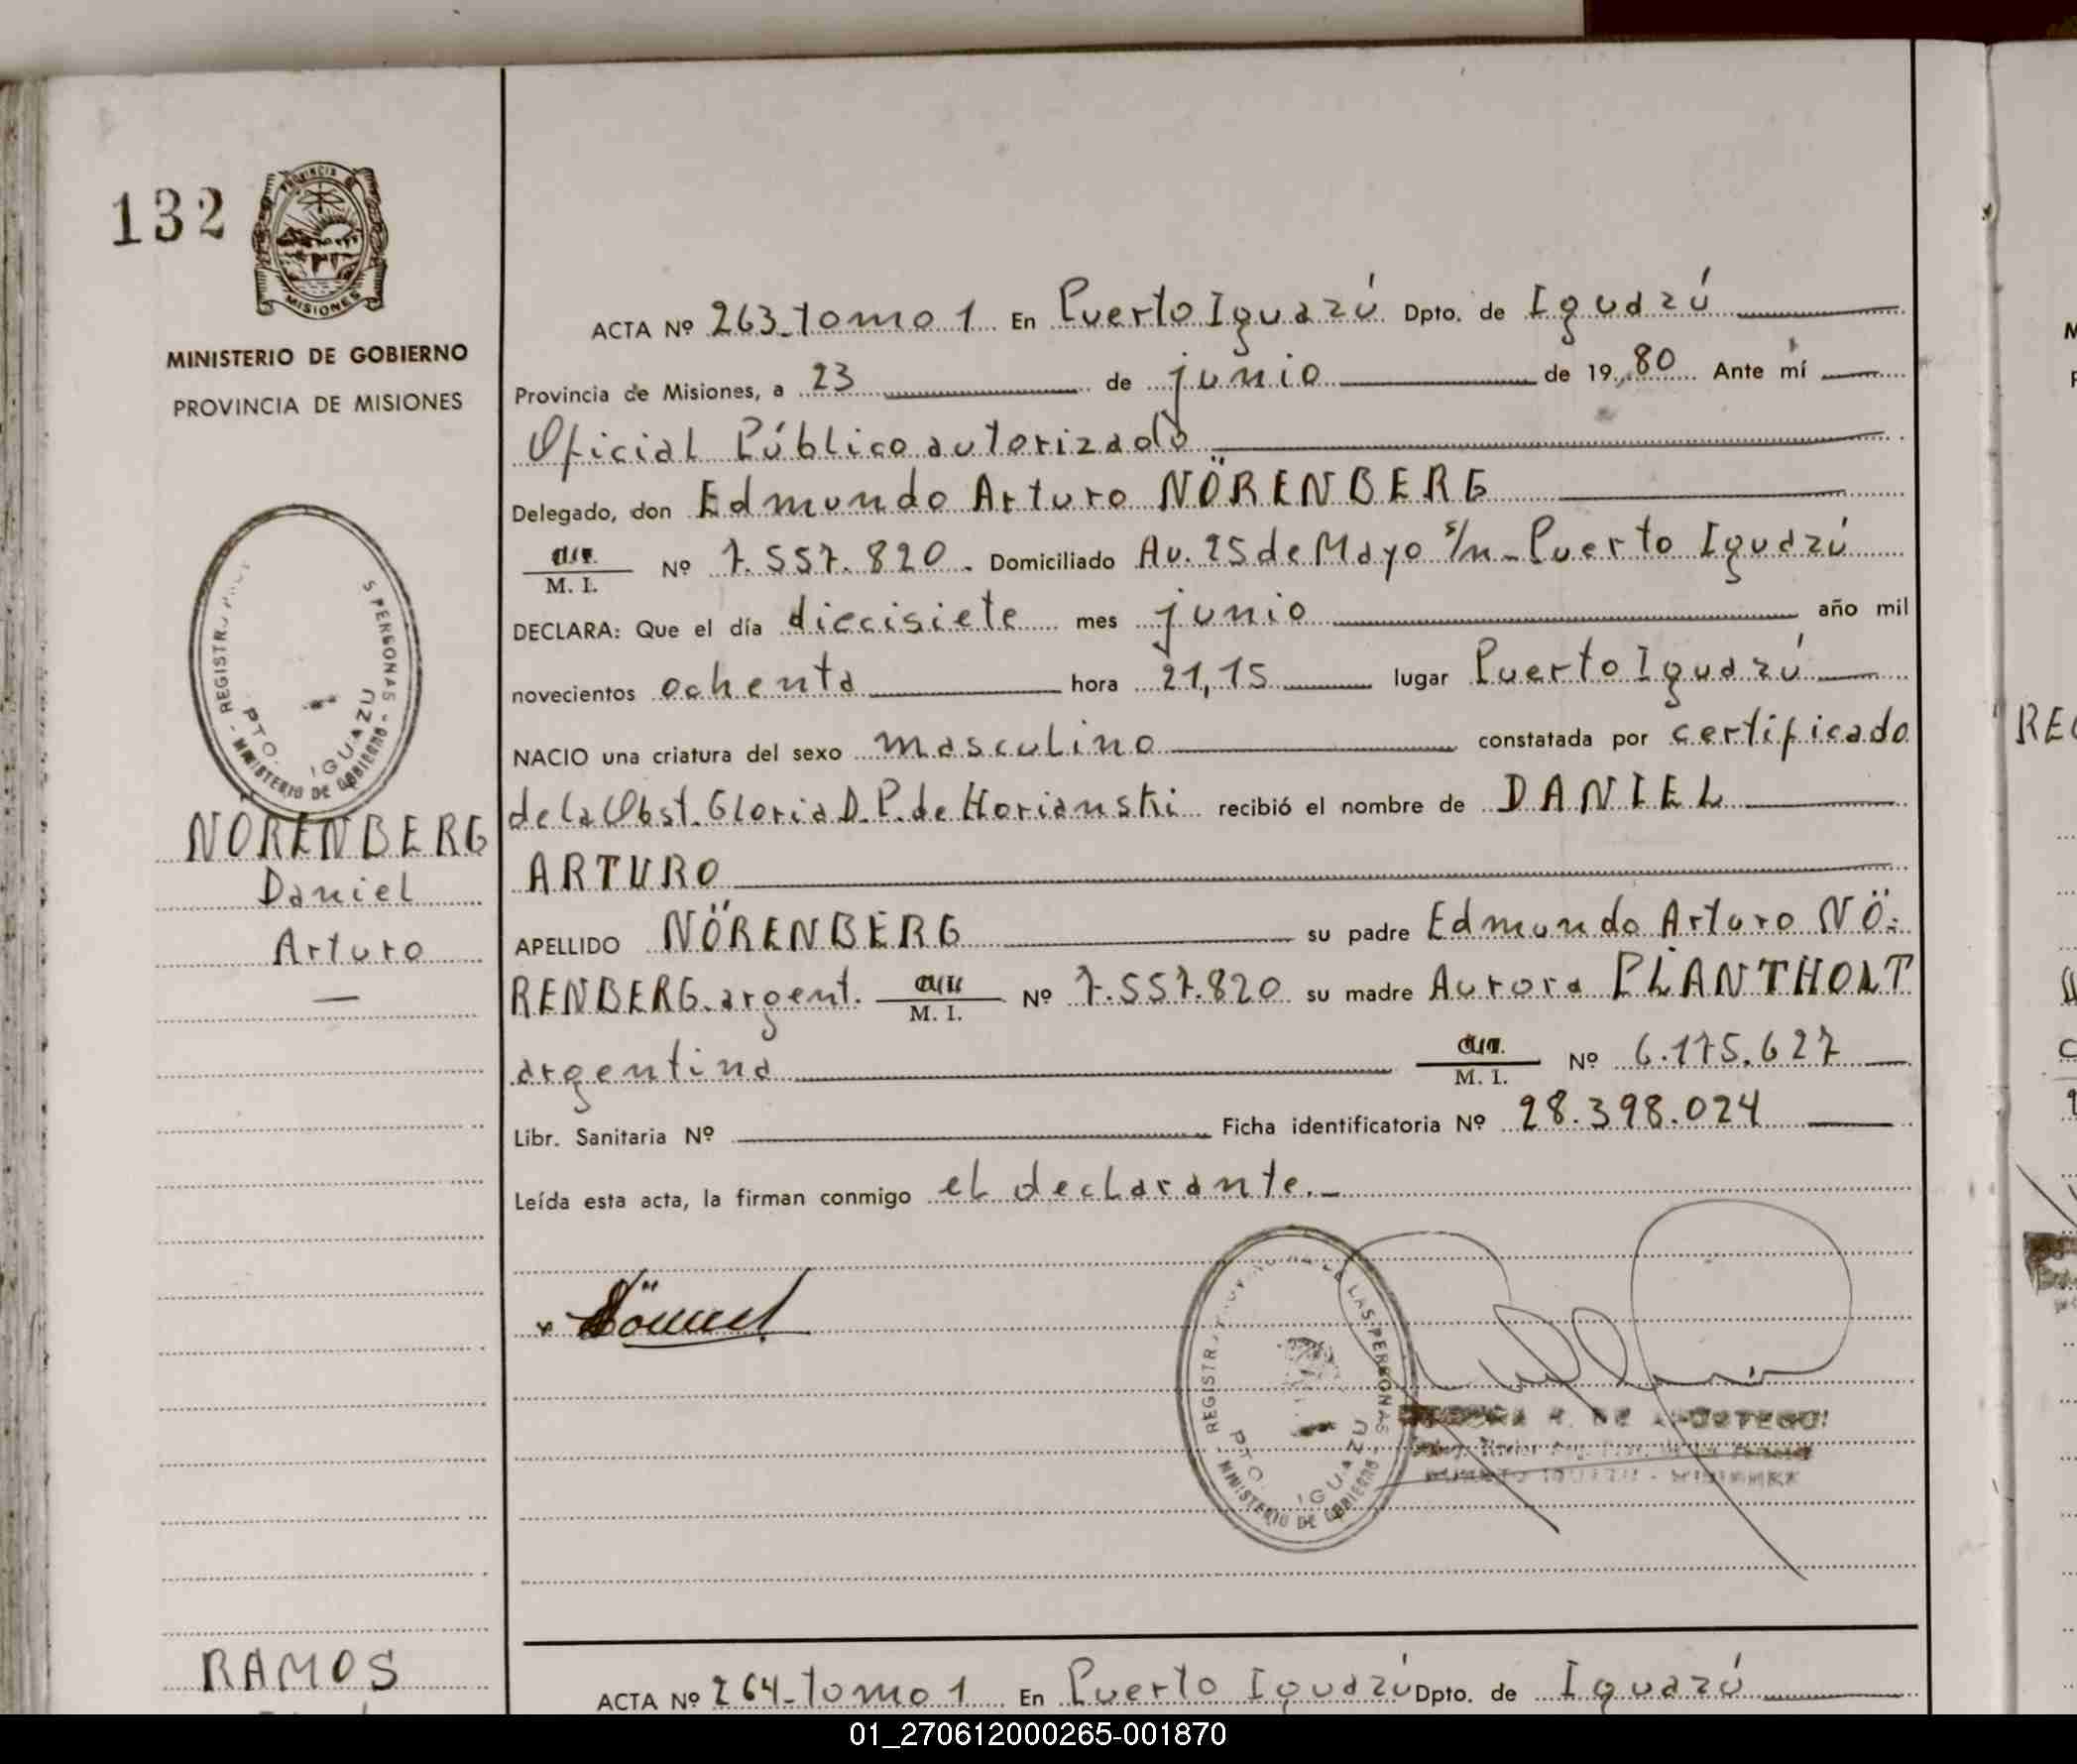 132
PROVINCIA DE
MISIONES
MINISTERIO DE GOBIERNO
PROVINCIA DE MISIONES
S PERSONAS -
PTO. IGUAZU
MINISTERIO DE GOBIERNO
NÖRENBERG
Daniel
Arturo
—
ACTA Nº 263-tomo 1 En Puerto Iguazú Dpto. de Iguazú
Provincia de Misiones, a 23 de junio de 1980 Ante mí
Oficial Público autorizado
Delegado, don Edmundo Arturo NÖRENBERG
M. I. Nº 7.557.820. Domiciliado Av. 25 de Mayo s/n-Puerto Iguazú
DECLARA: Que el día diecisiete mes junio año mil
novecientos ochenta hora 21,15 lugar Puerto Iguazú
NACIO una criatura del sexo masculino constatada por certificado
de la Obst. Gloria D. P. de Horianski recibió el nombre de DANIEL
ARTURO
APELLIDO NÖRENBERG su padre Edmundo Arturo NÖ-
RENBERG. argent. M. I. Nº 7.557.820 su madre Aurora PLANTHOLT
argentina M. I. Nº 6.175.627
Libr. Sanitaria Nº Ficha identificatoria Nº 28.398.024
Leída esta acta, la firman conmigo el declarante.-
LAS PERSONAS -
PTO. IGUAZU
MINISTERIO DE GOBIERNO
RAMOS
ACTA Nº 264-tomo 1 En Puerto Iguazú Dpto. de Iguazú
01_270612000265-001870